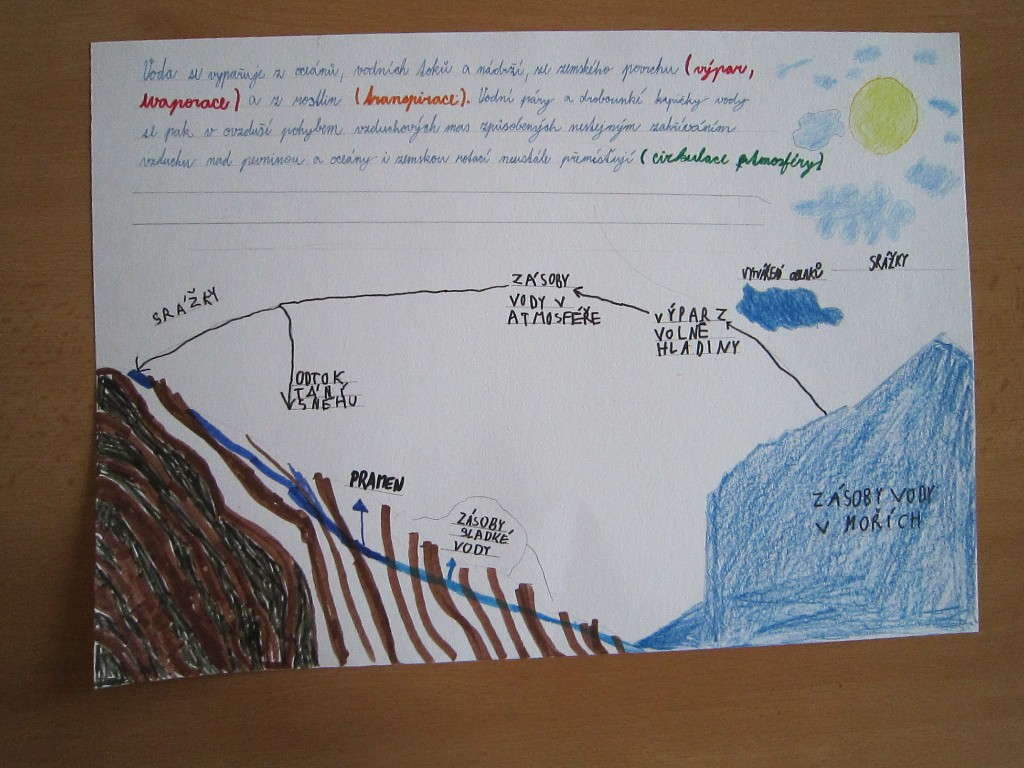 Voda se vypařuje z oceánů, vodních toků a nádrží, ze zemského povrchu (výpar,
evaporace) a z rostlin (transpirace). Vodní páry a drobounké kapičky vody
se pak v ovzduší pohybem vzduchových mas způsobených nestejným zahříváním
vzduchu nad pevninou a oceány i zemskou rotací neustále přemísťují (cirkulace atmosféry)
SRÁŽKY
VYTVÁŘENÍ OBLAKŮ
ZÁSOBY
VODY V
ATMOSFÉŘE
SRÁŽKY
VÝPAR Z
VOLNÉ
HLADINY
ODTOK
TÁNÝ
SNĚHU
PRAMEN
ZÁSOBY
SLADKÉ
VODY
ZÁSOBY VODY
V MOŘÍCH